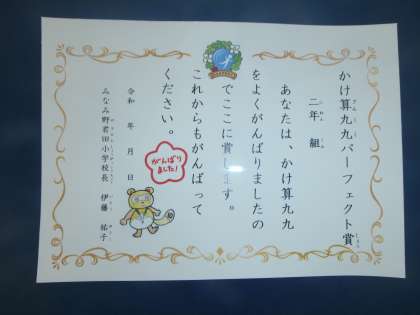 かけ算九九パーフェクト賞
二年 組
あなたは、かけ算九九
をよくがんばりましたの
でここに賞します。
これからもがんばって
ください。
がんばり
ました!
令和 年 月 日
みなみ野君田小学校長 伊藤 祐子